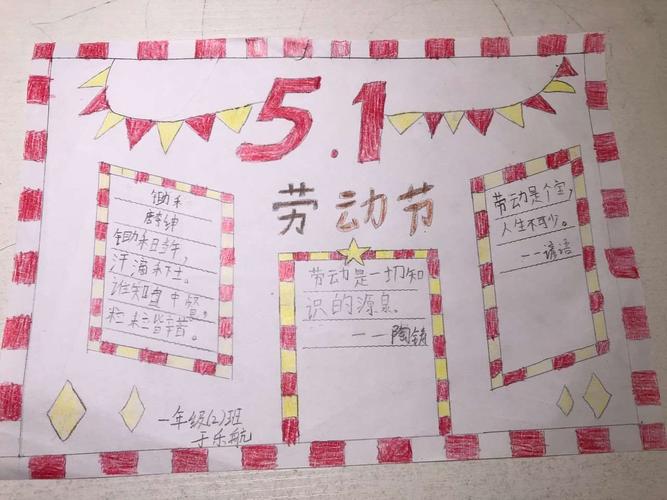 5.1
劳动节
锄禾
锄禾日当午,
汗滴禾下土。
谁知盘中餐。
粒粒皆辛苦。
劳动是一切知
识的源泉。
——陶铸
劳动是个宝,
人生不可少。
——谚语
一年级(2)班
于乐航